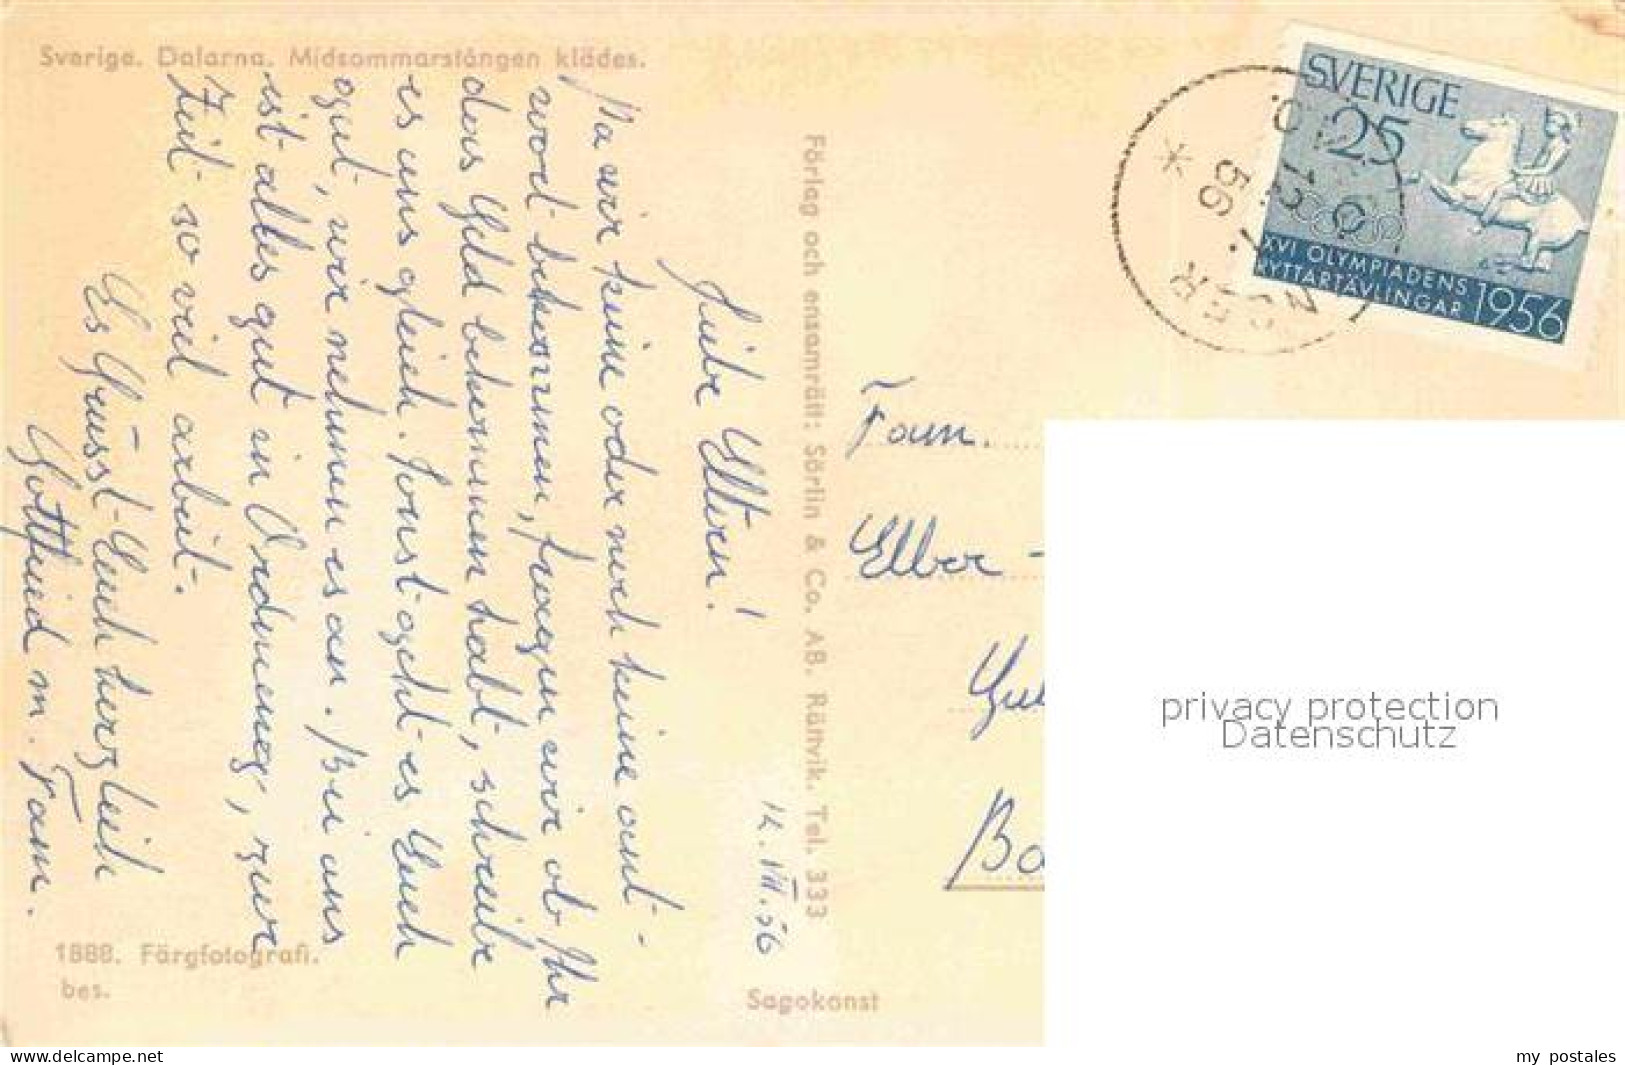 Sverige. Dalarna. Midsommarstången klädes.
12. VII. 56
Liebe Eltern!
Da wir keine oder noch keine ant-
wort bekommen, fragen wir ob Ihr
das Geld bekommen habt, schreibt
es uns gleich. Sonst geht es Euch
gut, wir nehmen es an. Bei uns
ist alles gut in Ordnung, zur
Zeit so viel arbeit.
Es Grüsst Euch herzlich
Gottfried m. Fam.
1888. Färgfotografi.
bes.
Förlag och ensamrätt: Sörlin & Co. AB. Rättvik. Tel. 333
Sagokonst
SVERIGE
25
XVI OLYMPIADENS
RYTTARTÄVLINGAR 1956
56
Fam.
Elber -
Gu
Ba
privacy protection
Datenschutz
www.delcampe.net
my_postales